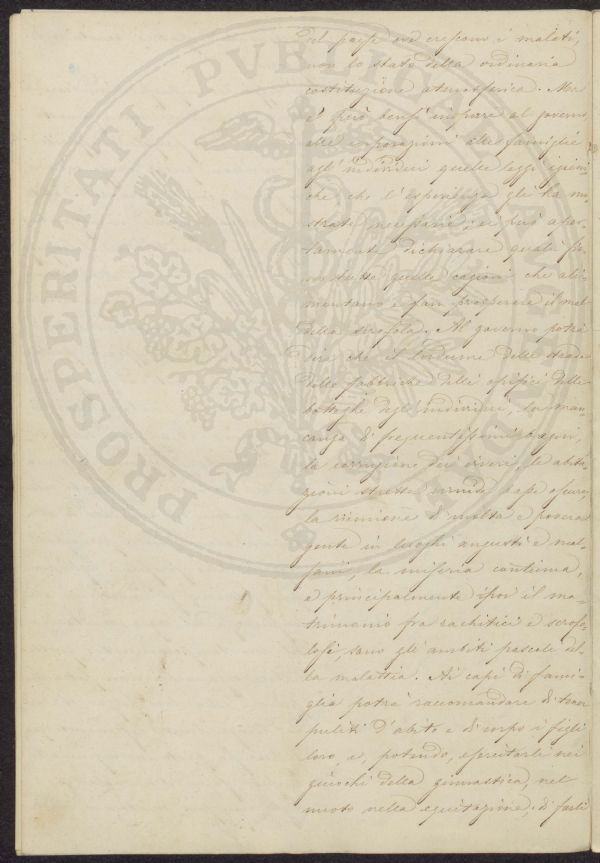 del paese ove crescono i malati,
non lo stato della ordinaria
costituzione atmosferica. Ma
e' può bensì insegnare al governo
alle corporazioni alle famiglie
agl'individui quelle leggi igieni-
che che l'esperienza gli ha mo-
strato necessarie; ei può aper-
tamente dichiarare quali
quelle cagioni che ali-
mentano e fan prosperare il mal
della scrofola. Al governo potrà
dire che il lordume delle strade
delle fabbriche delli opifici delle
botteghe degl'individui, la man-
canza di frequentissimi bagni,
la corruzione dei viveri, le abita-
zioni strette umide basse oscure
la riunione di molta e povera
gente in luoghi angusti e mal-
sani, la miseria continua,
e principalmente il ma-
trimonio fra rachitici e scrofo-
losi, sono gli ambiti pascoli del-
la malattia. Ai capi di fami-
glia potrà raccomandare di tener
puliti d'abito e di corpo i figli
loro, e, potendo, esercitarli nei
giuochi della ginnastica, nel
nuoto nella equitazione; di farli
PROSPERITATI PUBLICAE